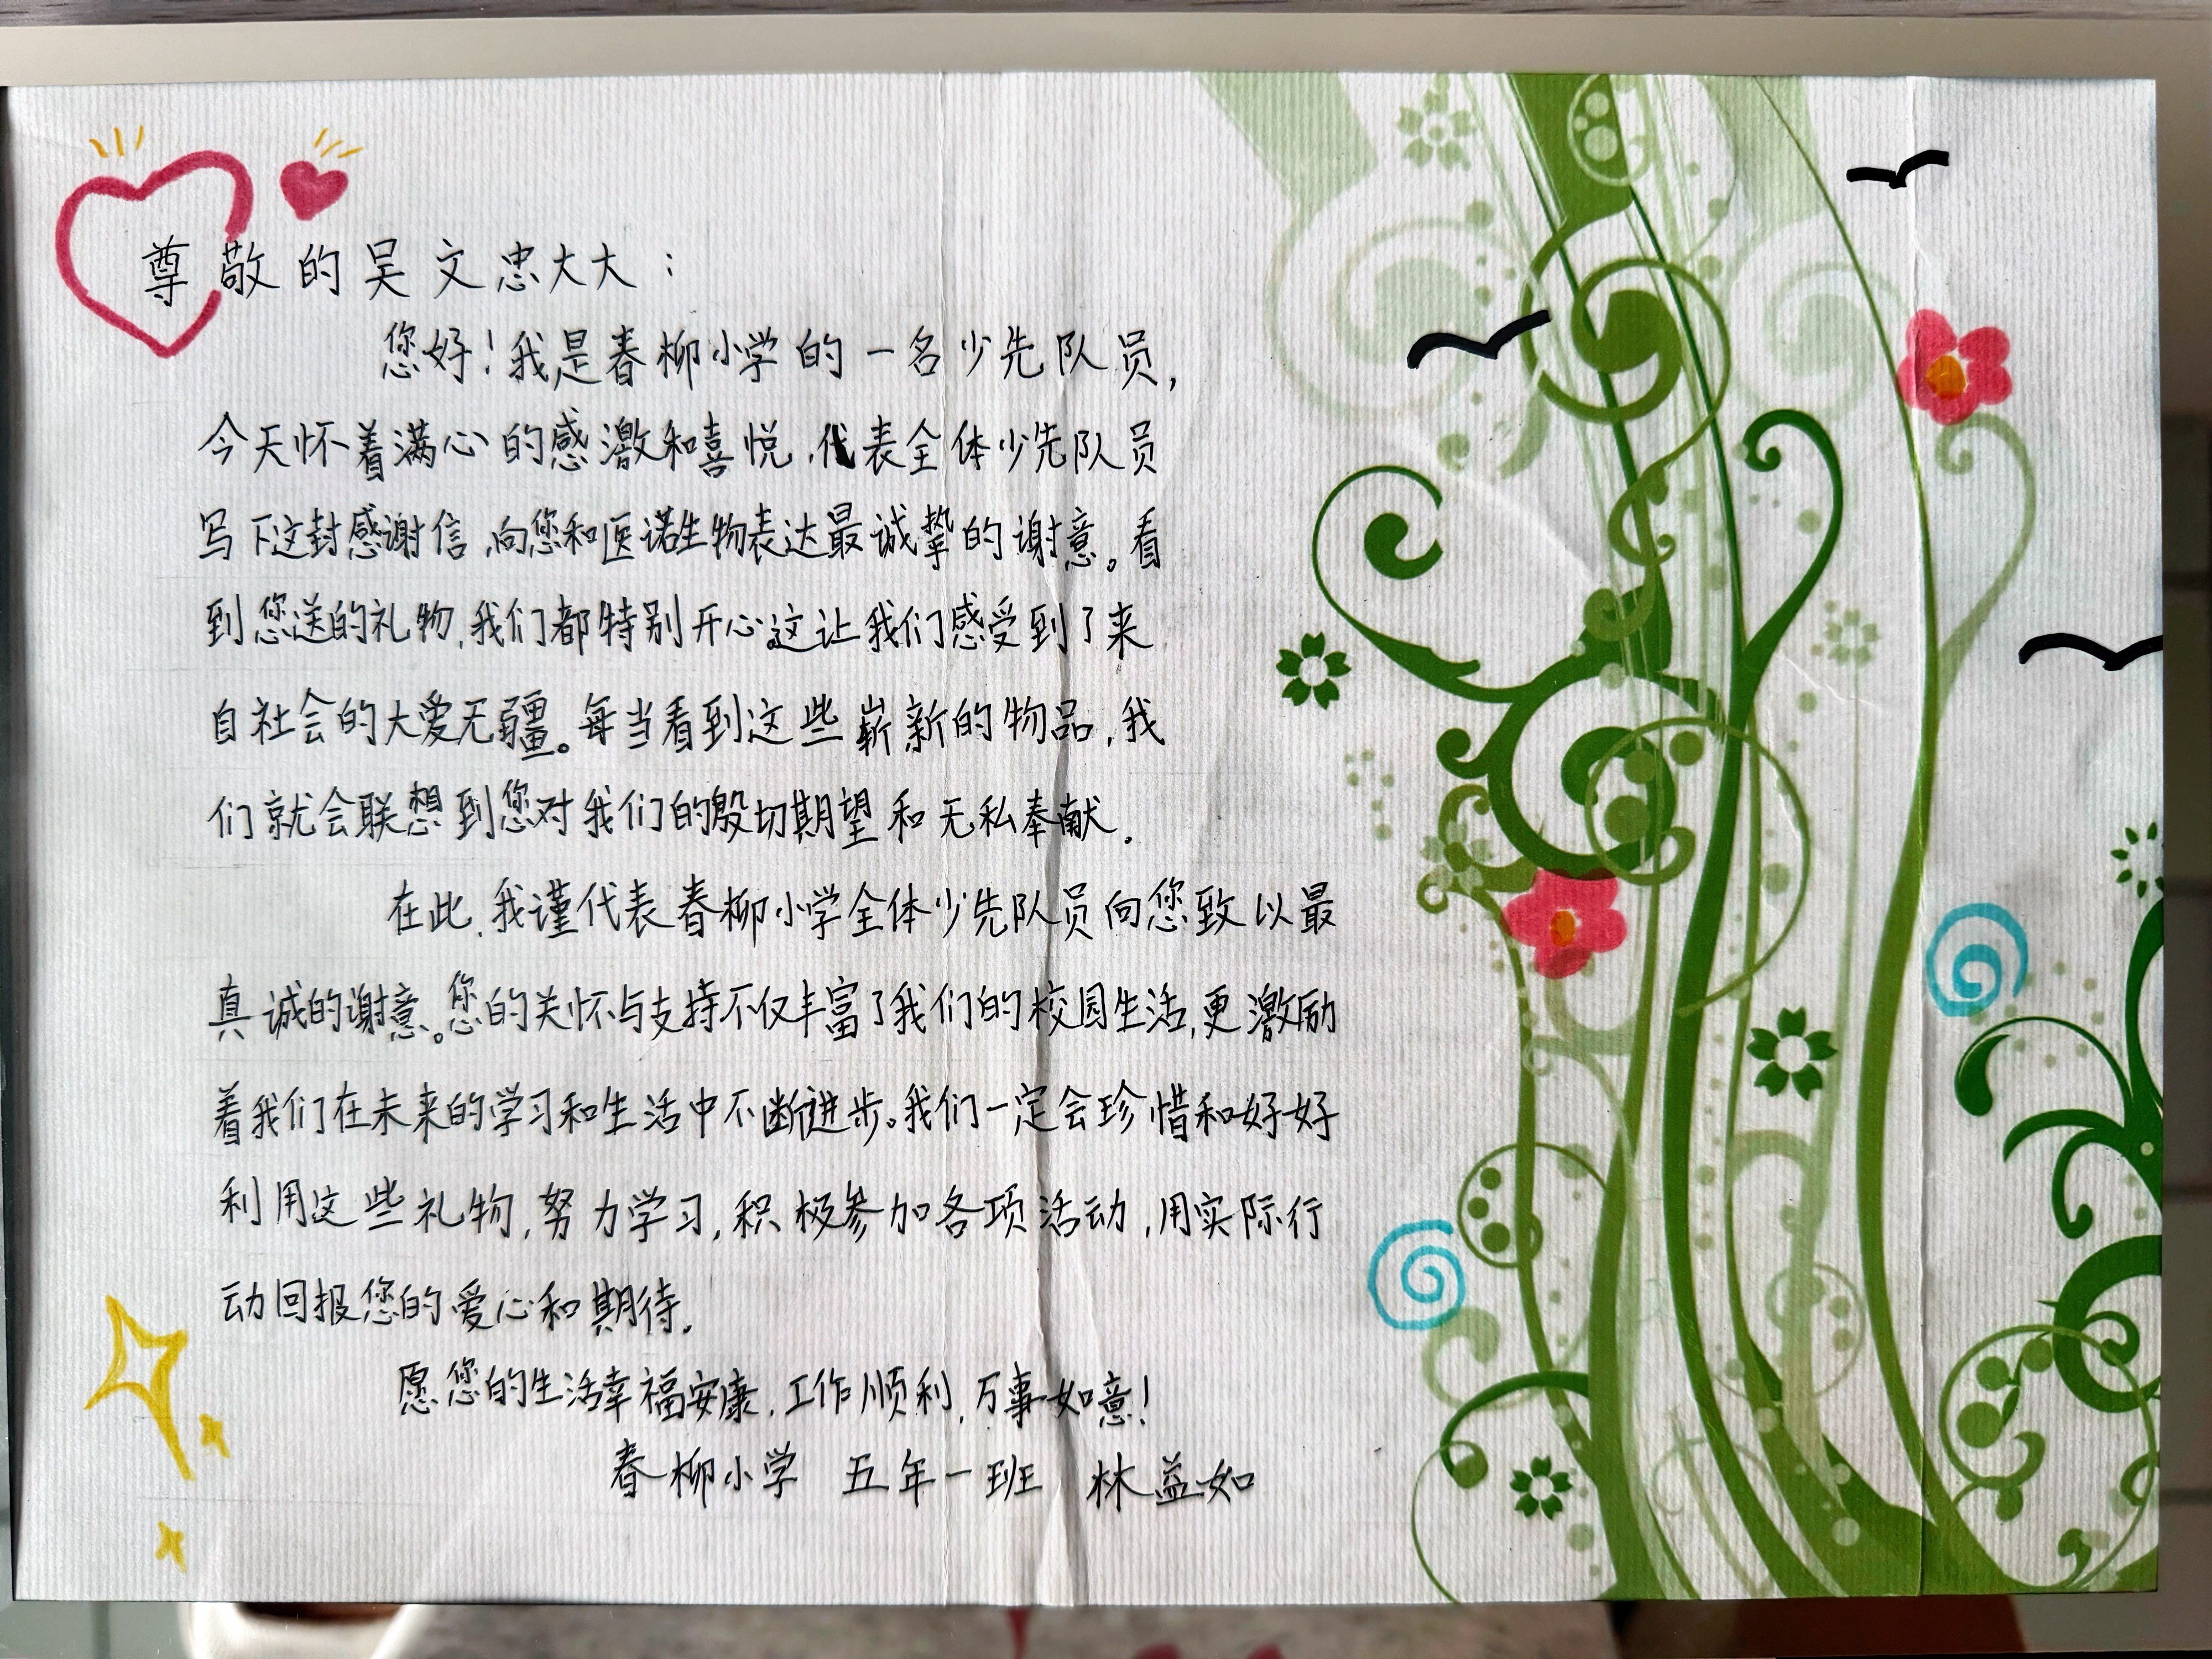 尊敬的吴文忠大大：
您好！我是春柳小学的一名少先队员，
今天怀着满心的感激和喜悦，代表全体少先队员
写下这封感谢信，向您和医诺生物表达最诚挚的谢意。看
到您送的礼物，我们都特别开心。这让我们感受到了来
自社会的大爱无疆。每当看到这些崭新的物品，我
们就会联想到您对我们的殷切期望和无私奉献。
在此，我谨代表春柳小学全体少先队员向您致以最
真诚的谢意。您的关怀与支持不仅丰富了我们的校园生活，更激励
着我们在未来的学习和生活中不断进步。我们一定会珍惜和好好
利用这些礼物，努力学习，积极参加各项活动，用实际行
动回报您的爱心和期待。
愿您的生活幸福安康，工作顺利，万事如意！
春柳小学 五年一班 林益如